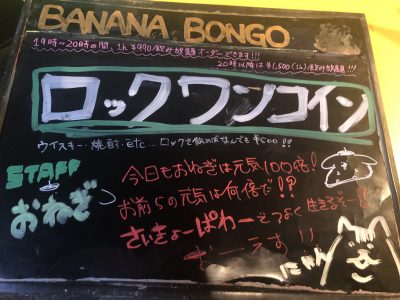 BANANA BONGO
19時～20時の間、1h ¥990飲み放題オーダーできます!!!
20時以降は¥1,500(1h)飲み放題!!!
ロックワンコイン
ウイスキー・焼酎・etc.....ロックで飲めばなんでも¥500!!
STAFF
おねぎ
今日もおねぎは元気100倍!
お前らの元気は何倍だ!?
さいきょーぱわーでつよく生きるぞー!!
おーえす!!
にゃん